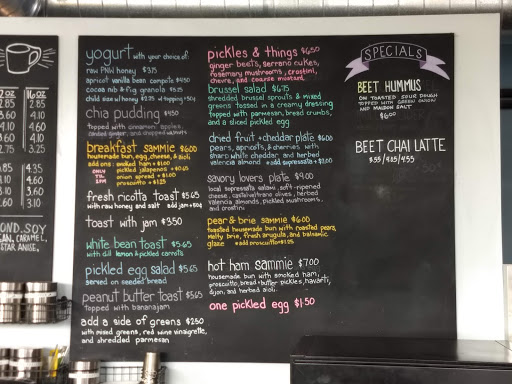 12 OZ 16 OZ
2.85
3.10
4.60
4.10
4.60
2.85
4.35
3.10
3.60
3.10
OND, SOY
CARAMEL,
STAR, ANISE,
yogurt with your choice of:
raw PNW honey $3.75
apricot vanilla bean compote $4.50
cocoa nib & fig granola $5.25
child size w/honey $2.25 w/topping +50¢
chia pudding $4.50
topped with cinnamon apples,
candied ginger, and chopped walnuts
breakfast sammie $6.00
housemade bun, egg, cheese, & aioli
add ons: smoked ham + $1.00
pickled jalapenos + 0.65
onion spread + $1.00
prosciutto + $1.25
ONLY
TIL
2PM
fresh ricotta toast $5.65
with raw honey and salt add jam + 50¢
toast with jam $3.50
white bean toast $5.65
with dill lemon & pickled carrots
pickled egg salad $5.65
served on seeded bread
peanut butter toast $5.65
topped with bananajam
add a side of greens $2.50
with mixed greens, red wine vinaigrette,
and shredded parmesan
pickles & things $6.50
ginger beets, serrano cukes,
rosemary mushrooms, crostini,
chevre, and coarse mustard
brussel salad $6.75
shredded brussel sprouts & mixed
greens tossed in a creamy dressing
topped with parmesan, bread crumbs,
and a sliced pickled egg
dried fruit + cheddar plate $6.00
pears, apricots, & cherries with
sharp white cheddar and herbed
valencia almond add sopressata + $2.00
savory lovers plate $9.00
local sopressata salami, soft-ripened
cheese, castelvetrano olives, herbed
valencia almonds, pickled mushrooms,
and crostini
pear & brie sammie $6.00
toasted housemade bun with roasted pears,
melty brie, fresh arugula, and balsamic
glaze add prosciutto + $1.25
hot ham sammie $7.00
housemade bun with smoked ham,
prosciutto, bread + butter pickles, havarti,
dijon, and herbed aioli.
one pickled egg $1.50
SPECIALS
BEET HUMMUS
ON TOASTED SOUR DOUGH
TOPPED WITH GREEN ONION
AND MALDON SALT
$6.00
BEET CHAI LATTE
3.55/4.55